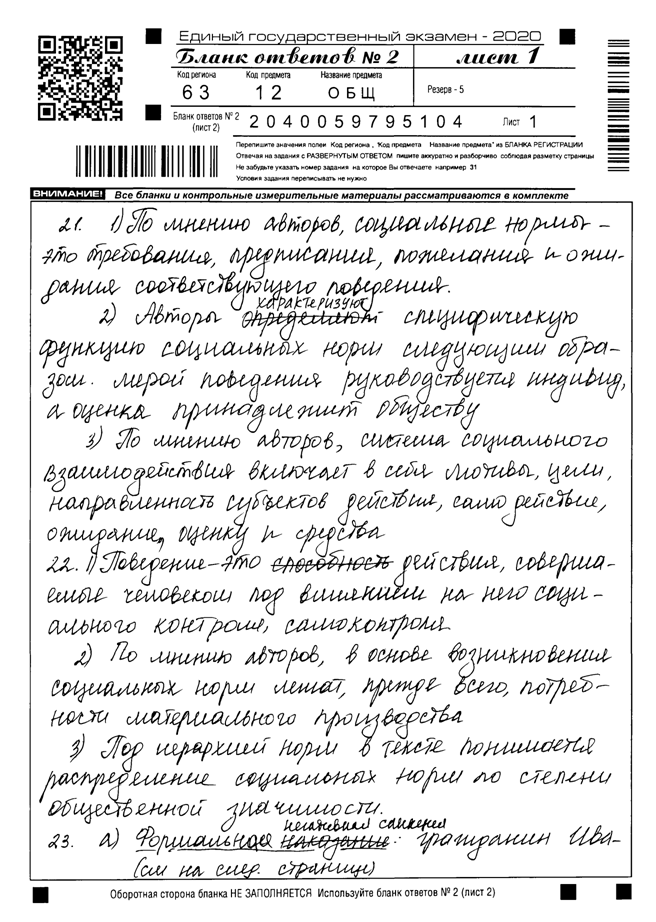 Единый государственный экзамен - 2020
Бланк ответов № 2 лист 1
Код региона Код предмета Название предмета
63 12 ОБЩ Резерв - 5
Бланк ответов № 2 (лист 2) 2040059795104 Лист 1
Перепишите значения полей Код региона , "Код предмета Название предмета" из БЛАНКА РЕГИСТРАЦИИ
Отвечая на задания с РАЗВЕРНУТЫМ ОТВЕТОМ пишите аккуратно и разборчиво соблюдая разметку страницы
Не забудьте указать номер задания на которое Вы отвечаете например 31
Условия задания переписывать не нужно
ВНИМАНИЕ! Все бланки и контрольные измерительные материалы рассматриваются в комплекте
21. 1) По мнению авторов, социальные нормы -
это требования, предписания, пожелания и ожи-
дания соответствующего поведения.
характеризуют
2) Авторы определяют специфическую
функцию социальных норм следующим обра-
зом. мерой поведения руководствуется индивид,
а оценка принадлежит обществу
3) По мнению авторов, система социального
взаимодействия включает в себя мотивы, цели,
направленность субъектов действия, само действие,
ожидание, оценку и средства
22. 1) Поведение - это способность действия, соверша-
емые человеком под влиянием на него соци-
ального контроля, самоконтроля
2) По мнению авторов, в основе возникновения
социальных норм лежат, прежде всего, потреб-
ности материального производства
3) Под иерархией норм в тексте понимается
распределение социальных норм по степени
общественной значимости.
негативная санкция
23. а) Формальная наказание: гражданин Ива-
(см на след. странице)
Оборотная сторона бланка НЕ ЗАПОЛНЯЕТСЯ Используйте бланк ответов № 2 (лист 2)